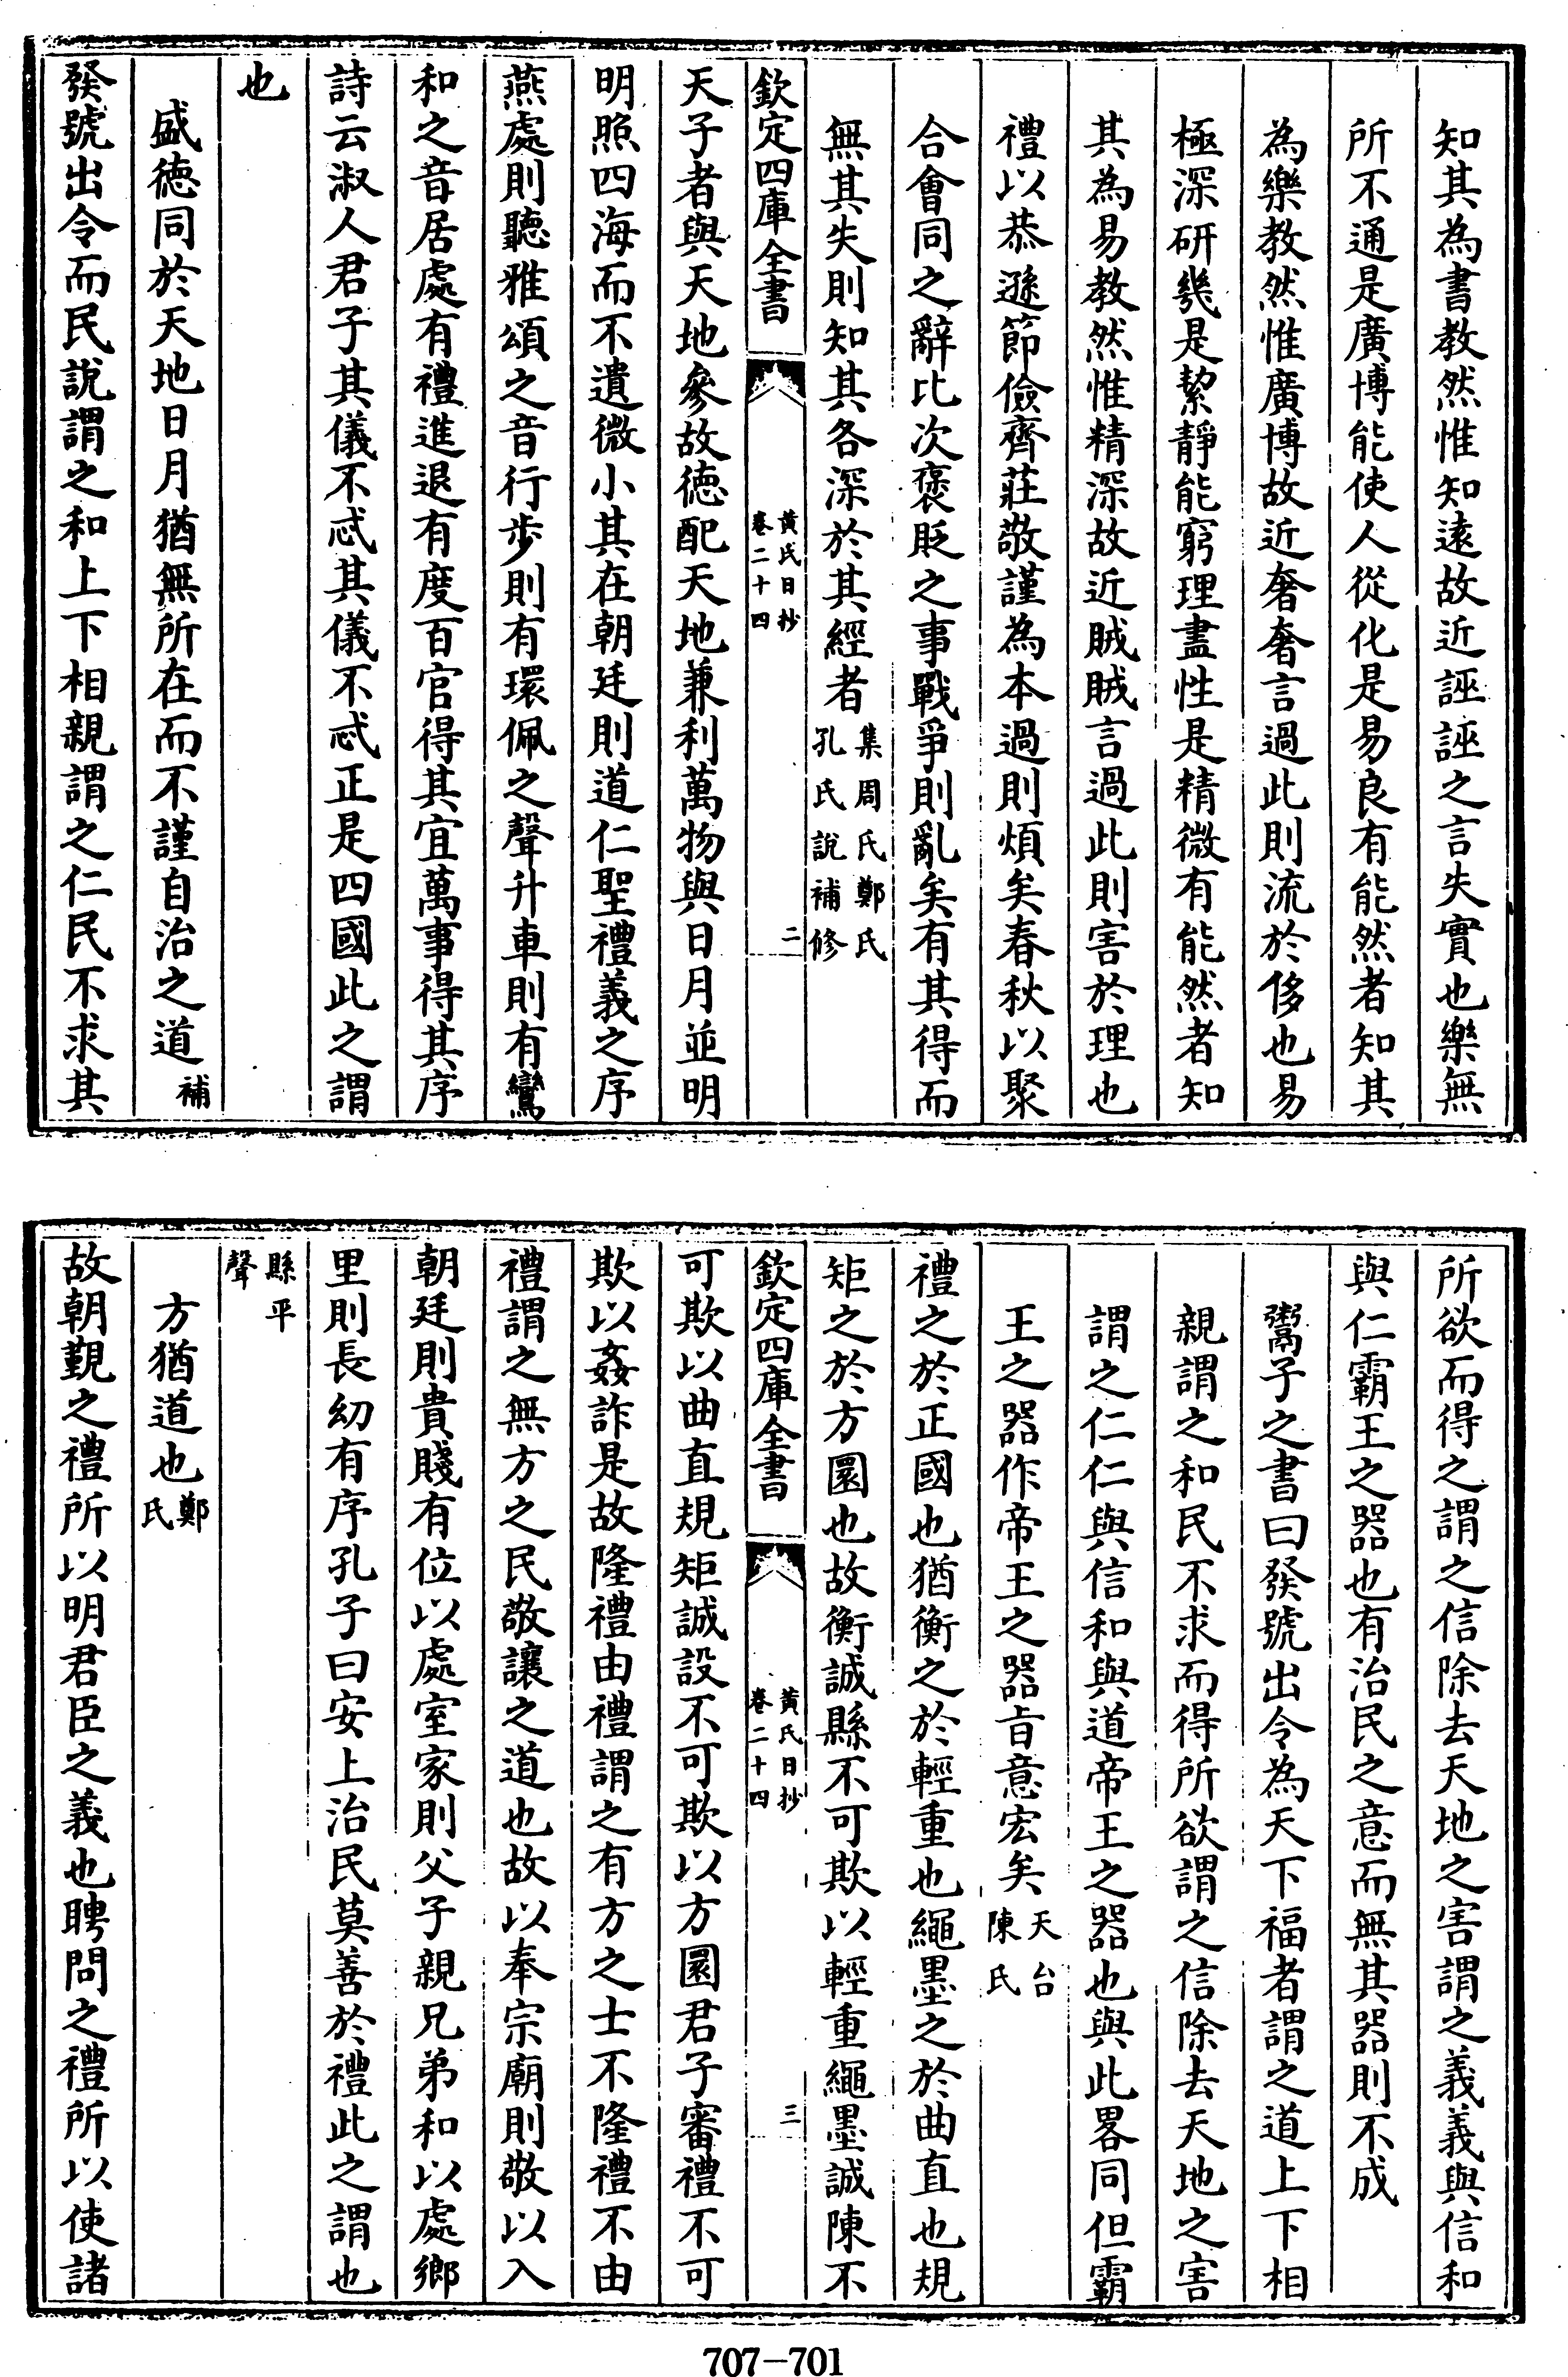 知其為書教然惟知逺故近誣誣之言失實也樂無
所不通是廣博能使人從化是易良有能然者知其
為樂教然惟廣博故近奢奢言過此則流於侈也易
極深研幾是絜靜能窮理盡性是精微有能然者知
其為易教然惟精深故近賊賊言過此則害於理也
禮以恭遜節儉齊莊敬謹為本過則煩矣春秋以聚
合會同之辭比次褒貶之事戰爭則亂矣有其得而
無其失則知其各深於其經者集周氏鄭氏孔氏說補修
欽定四庫全書 黃氏日抄 卷二十四 二
天子者與天地參故徳配天地兼利萬物與日月並明
明照四海而不遺微小其在朝廷則道仁聖禮義之序
燕處則聽雅頌之音行步則有環佩之聲升車則有鸞
和之音居處有禮進退有度百官得其宜萬事得其序
詩云淑人君子其儀不忒其儀不忒正是四國此之謂
也
盛徳同於天地日月猶無所在而不謹自治之道補
發號出令而民說謂之和上下相親謂之仁民不求其
所欲而得之謂之信除去天地之害謂之義義與信和
與仁霸王之器也有治民之意而無其器則不成
鬻子之書曰發號出令為天下福者謂之道上下相
親謂之和民不求而得所欲謂之信除去天地之害
謂之仁仁與信和與道帝王之器也與此畧同但霸
王之器作帝王之器㫖意宏矣天台陳氏
禮之於正國也猶衡之於輕重也繩墨之於曲直也規
矩之於方圜也故衡誠縣不可欺以輕重繩墨誠陳不
欽定四庫全書 黃氏日抄 卷二十四 三
可欺以曲直規矩誠設不可欺以方圜君子審禮不可
欺以姦詐是故隆禮由禮謂之有方之士不隆禮不由
禮謂之無方之民敬讓之道也故以奉宗廟則敬以入
朝廷則貴賤有位以處室家則父子親兄弟和以處鄉
里則長幼有序孔子曰安上治民莫善於禮此之謂也
縣平聲
方猶道也鄭氏
故朝覲之禮所以明君臣之義也聘問之禮所以使諸
707-701